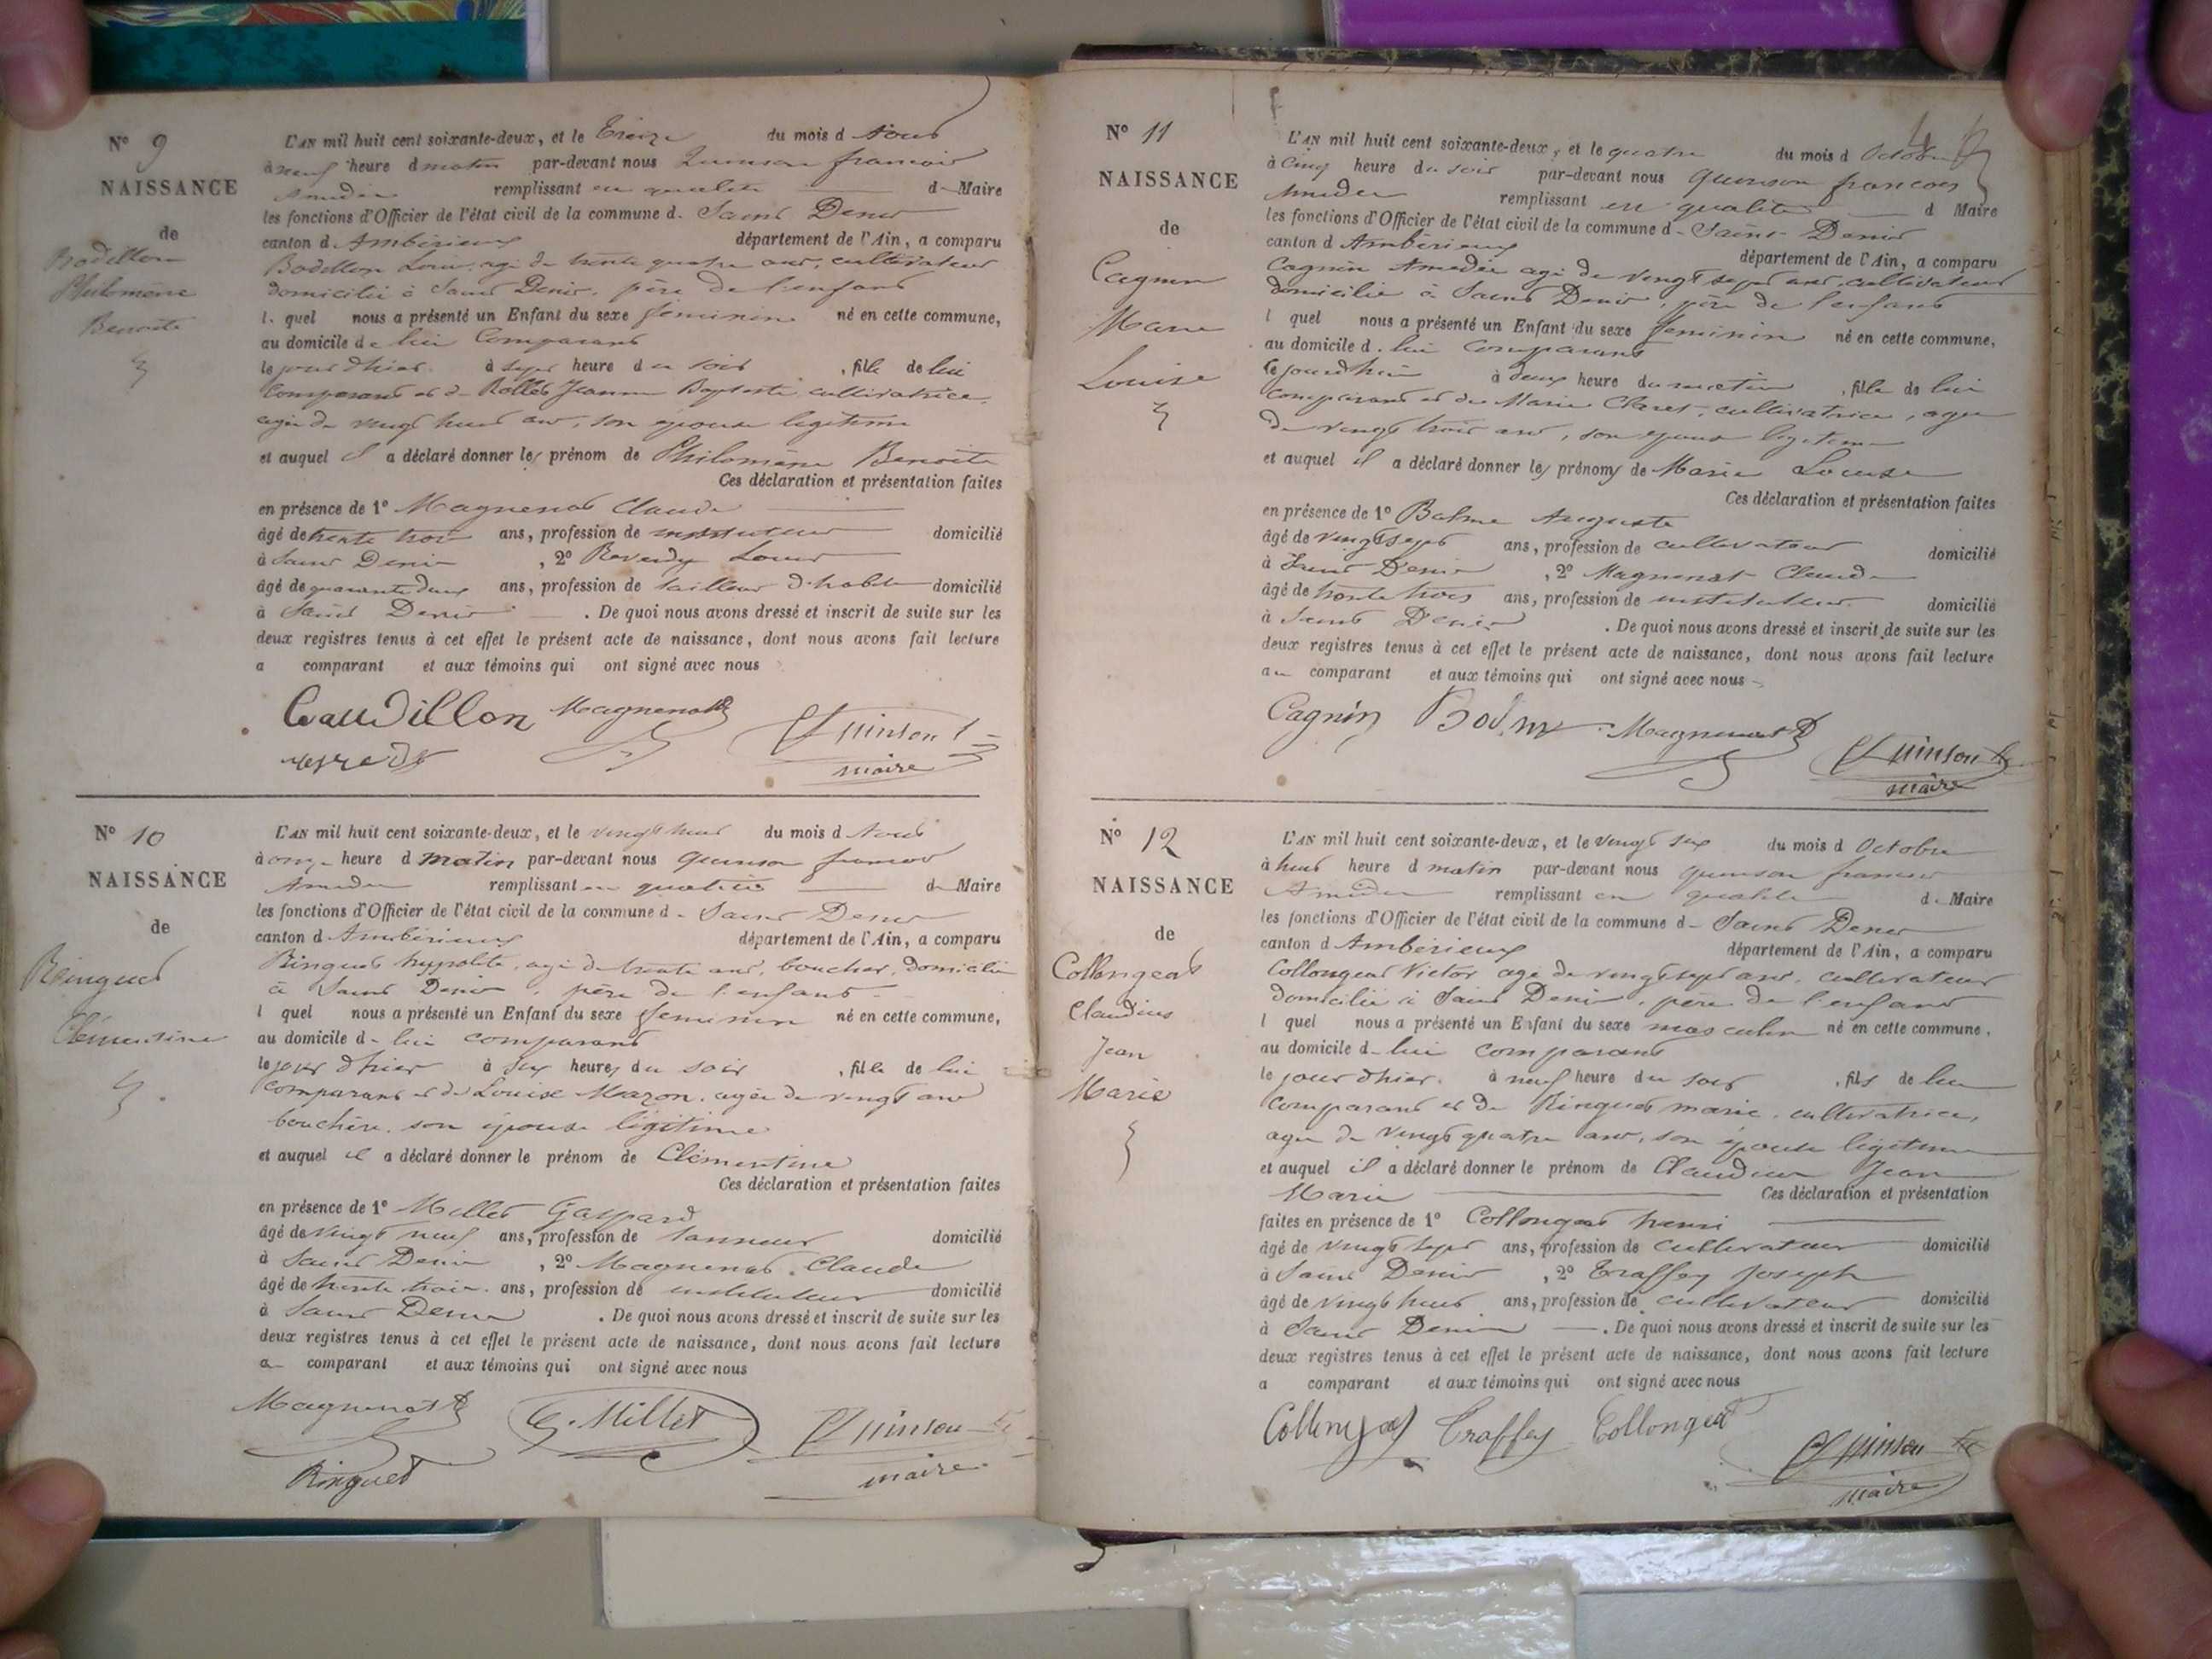 N° 9
NAISSANCE
de
Bodillon
Philomène
Benoite
L'AN mil huit cent soixante-deux, et le treize du mois d'Aout
à neuf heure du matin par-devant nous Quinson francois
Amedée remplissant en qualité de Maire
les fonctions d'Officier de l'état civil de la commune de Saint Denis
canton d'Ambérieux département de l'Ain, a comparu
Bodillon Louis, agé de trente quatre ans, cultivateur
domicilié à Saint Denis, père de l'enfant
lequel nous a présenté un Enfant du sexe feminin né en cette commune,
au domicile de lui Comparant
le jour d'hier à sept heure du soir, fille de lui
Comparant et de Rollet Jeanne Baptiste cultivatrice
agée de vingt huit ans, son epouse legitime
et auquel il a déclaré donner les prénom de Philomène Benoite
Ces déclaration et présentation faites
en présence de 1° Magnenat Claude
âgé de trente trois ans, profession de instituteur domicilié
à Saint Denis, 2° Reverdy Louis
âgé de quarante deux ans, profession de tailleur d'habits domicilié
à Saint Denis. De quoi nous avons dressé et inscrit de suite sur les
deux registres tenus à cet effet le présent acte de naissance, dont nous avons fait lecture
a comparant et aux témoins qui ont signé avec nous
Magnenat
Quinson
maire
N° 10
NAISSANCE
de
Ringuet
Clémentine
L'AN mil huit cent soixante-deux, et le vingt huit du mois d'Aout
à onze heure du matin par-devant nous Quinson francois
Amedée remplissant en qualité de Maire
les fonctions d'Officier de l'état civil de la commune de Saint Denis
canton d'Ambérieux département de l'Ain, a comparu
Ringuet hypolite, agé de trente ans, boucher, domicilié
à Saint Denis, père de l'enfant
lequel nous a présenté un Enfant du sexe feminin né en cette commune,
au domicile de lui comparant
le jour d'hier à six heures du soir, fille de lui
Comparant et de Louise Mazon, agée de vingt ans
bouchère, son épouse légitime
et auquel il a déclaré donner le prénom de Clémentine
Ces déclaration et présentation faites
en présence de 1° Millet Gaspard
âgé de vingt neuf ans, profession de tanneur domicilié
à Saint Denis, 2° Magnenat Claude
âgé de trente trois ans, profession de instituteur domicilié
à Saint Denis. De quoi nous avons dressé et inscrit de suite sur les
deux registres tenus à cet effet le présent acte de naissance, dont nous avons fait lecture
au comparant et aux témoins qui ont signé avec nous
Magnenat G. Millet Quinson
Ringuet maire
N° 11
NAISSANCE
de
Cagnin
Marie
Louise
L'AN mil huit cent soixante-deux, et le quatre du mois d'Octobre
à cinq heure du soir par-devant nous Quinson francois
Amedée remplissant en qualité de Maire
les fonctions d'Officier de l'état civil de la commune de Saint Denis
canton d'Ambérieux département de l'Ain, a comparu
Cagnin Amedée agé de vingt sept ans, cultivateur
domicilié à Saint Denis, père de l'enfant
lequel nous a présenté un Enfant du sexe feminin né en cette commune,
au domicile de lui comparant
ce jourd'hui à deux heure du matin, fille de lui
comparant et de Marie Claret, cultivatrice, agée
de vingt trois ans, son epouse legitime
et auquel il a déclaré donner les prénoms de Marie Louise
Ces déclaration et présentation faites
en présence de 1° Balme Auguste
âgé de vingt sept ans, profession de cultivateur domicilié
à Saint Denis, 2° Magnenat Claude
âgé de trente trois ans, profession de instituteur domicilié
à Saint Denis. De quoi nous avons dressé et inscrit de suite sur les
deux registres tenus à cet effet le présent acte de naissance, dont nous avons fait lecture
au comparant et aux témoins qui ont signé avec nous
Cagnin Magnenat Quinson
maire
N° 12
NAISSANCE
de
Collongeat
Claudius
Jean
Marie
L'AN mil huit cent soixante-deux, et le vingt six du mois d'Octobre
à huit heure du matin par-devant nous Quinson francois
Amedée remplissant en qualité de Maire
les fonctions d'Officier de l'état civil de la commune de Saint Denis
canton d'Ambérieux département de l'Ain, a comparu
Collongeat Victor agé de vingt sept ans, cultivateur
domicilié à Saint Denis, père de l'enfant
lequel nous a présenté un Enfant du sexe masculin né en cette commune,
au domicile de lui comparant
le jour d'hier à neuf heure du soir, fils de lui
Comparant et de Ringuet marie, cultivatrice,
agée de vingt quatre ans, son épouse légitime
et auquel il a déclaré donner le prénom de Claudius Jean
Marie Ces déclaration et présentation
faites en présence de 1° Collongeat henri
âgé de vingt sept ans, profession de cultivateur domicilié
à Saint Denis, 2° Traffey Joseph
âgé de vingt huit ans, profession de cultivateur domicilié
à Saint Denis. De quoi nous avons dressé et inscrit de suite sur les
deux registres tenus à cet effet le présent acte de naissance, dont nous avons fait lecture
a comparant et aux témoins qui ont signé avec nous
Collongeat Traffey Collongeat
Quinson
maire